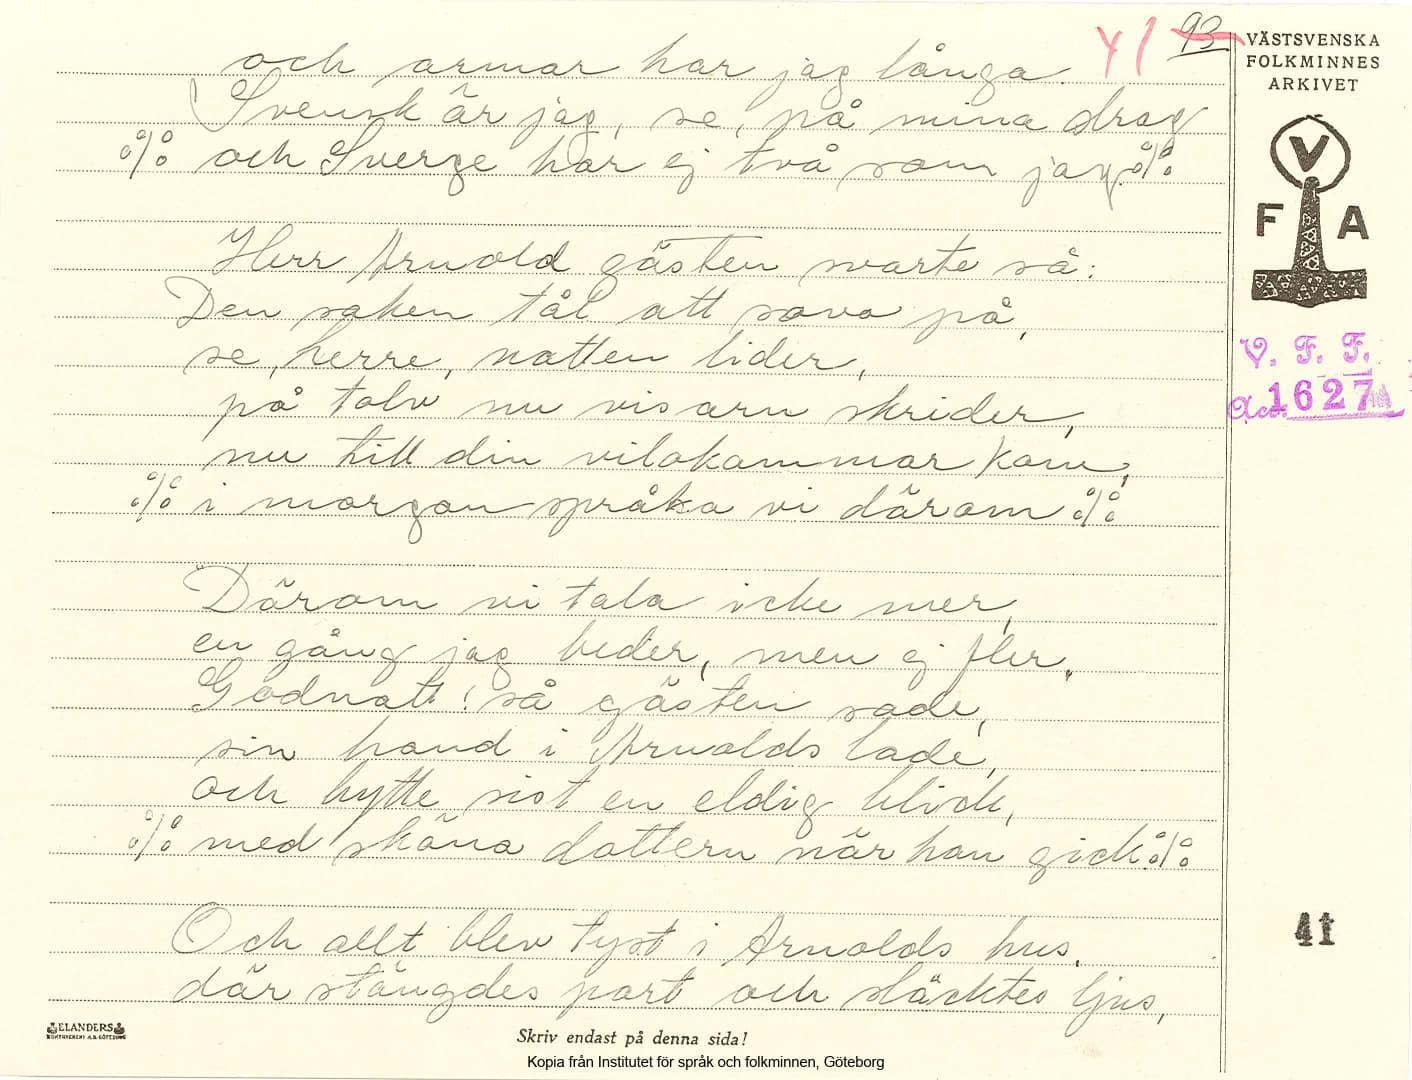 och armar har jag långa.
Svensk är jag, se, på mina drag
·/· och Sverge har ej två som jag. ·/·
Herr Arnold gästen svarte så:
Den saken tål att sova på,
se, herre, natten lider,
på tolv nu visarn skrider,
nu till din vilokammar kom,
·/· i morgon språka vi därom ·/·
Därom vi tala icke mer,
en gång jag beder, men ej fler.
Godnatt! så gästen sade,
sin hand i Arnolds lade,
och bytte sist en eldig blick,
·/· med sköna dottern när han gick ·/·
Och allt blev tyst i Arnolds hus,
där stängdes port och släcktes ljus,
41
93
VÄSTSVENSKA
FOLKMINNES
ARKIVET
V
F A
V. F. F.
Acc. 1627
4t
ELANDERS
Skriv endast på denna sida!
Kopia från Institutet för språk och folkminnen, Göteborg